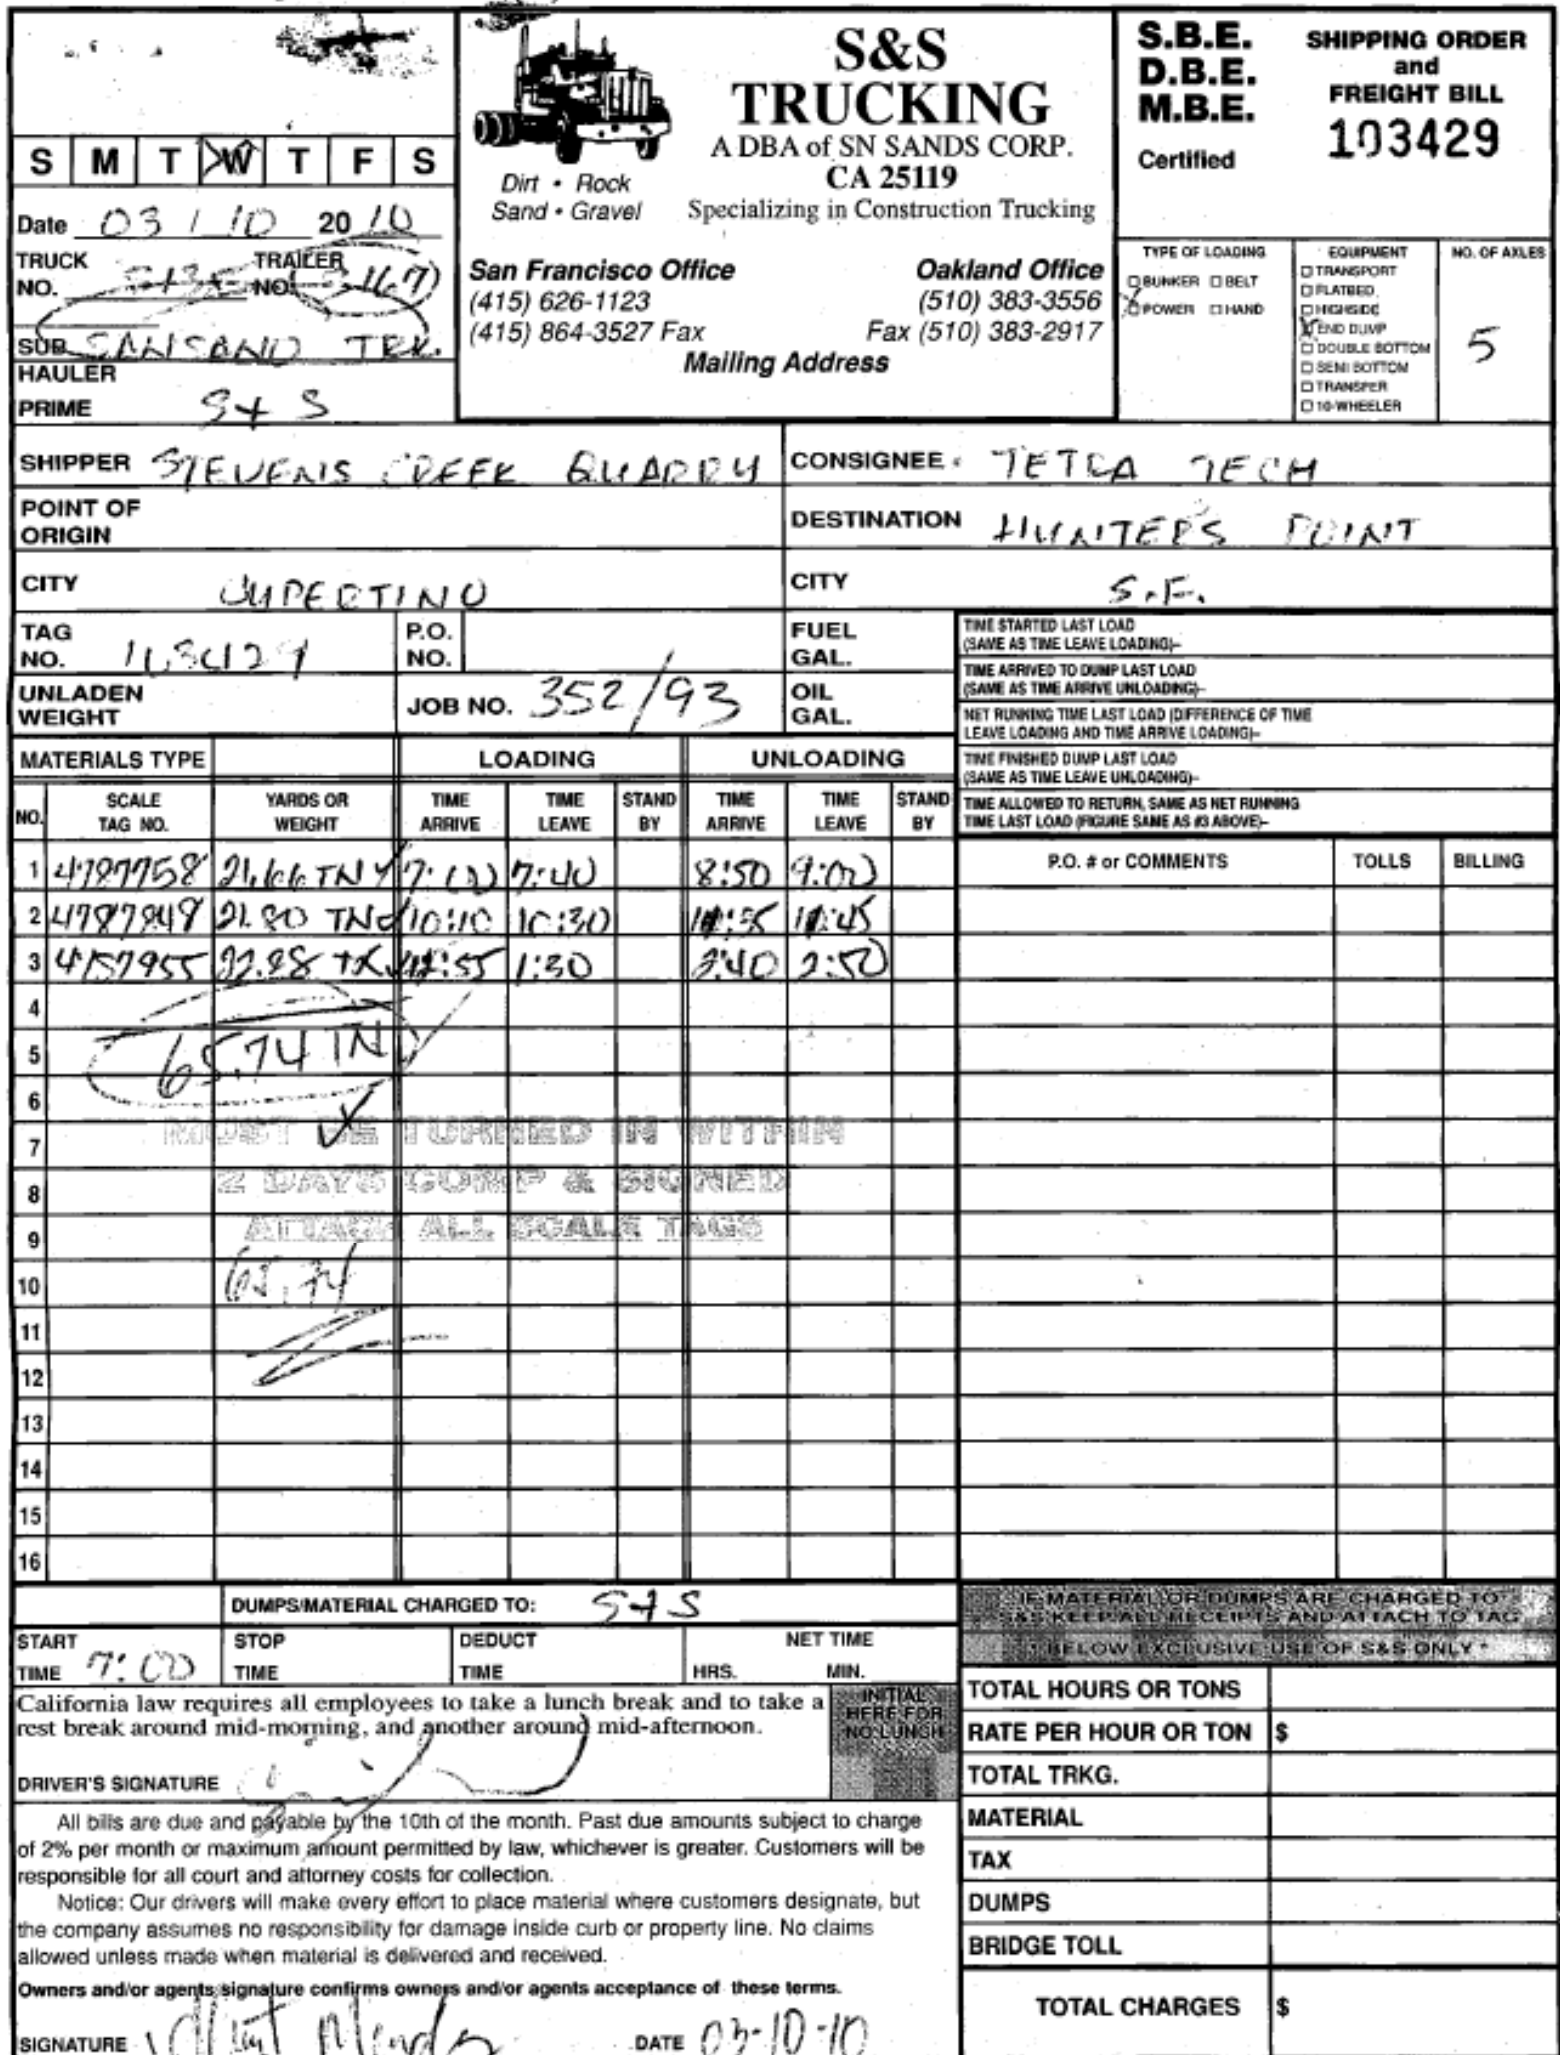 S&S
TRUCKING
A DBA of SN SANDS CORP.
CA 25119
Specializing in Construction Trucking
Dirt • Rock
Sand • Gravel
San Francisco Office
(415) 626-1123
(415) 864-3527 Fax
Oakland Office
(510) 383-3556
Fax (510) 383-2917
Mailing Address
S.B.E.
D.B.E.
M.B.E.
Certified
SHIPPING ORDER
and
FREIGHT BILL
103429
S M T W T F S
Date 03 / 10 20 10
TRUCK NO. TRAILER NO.
SUB SANSANO TRK.
HAULER
PRIME S+S
TYPE OF LOADING
BUNKER BELT
POWER HAND
EQUIPMENT
TRANSPORT
FLATBED
HIGHSIDE
END DUMP
DOUBLE BOTTOM
SEMI BOTTOM
TRANSFER
10-WHEELER
NO. OF AXLES
5
SHIPPER STEVENS CREEK QUARRY
CONSIGNEE TETRA TECH
POINT OF ORIGIN
DESTINATION HUNTERS POINT
CITY CUPERTINO
CITY S.F.
TAG NO. 103429
P.O. NO.
FUEL GAL.
UNLADEN WEIGHT
JOB NO. 352/93
OIL GAL.
TIME STARTED LAST LOAD
(SAME AS TIME LEAVE LOADING)–
TIME ARRIVED TO DUMP LAST LOAD
(SAME AS TIME ARRIVE UNLOADING)–
NET RUNNING TIME LAST LOAD (DIFFERENCE OF TIME
LEAVE LOADING AND TIME ARRIVE LOADING)–
TIME FINISHED DUMP LAST LOAD
(SAME AS TIME LEAVE UNLOADING)–
TIME ALLOWED TO RETURN, SAME AS NET RUNNING
TIME LAST LOAD (FIGURE SAME AS #3 ABOVE)–
MATERIALS TYPE LOADING UNLOADING
NO. SCALE TAG NO. YARDS OR WEIGHT TIME ARRIVE TIME LEAVE STAND BY TIME ARRIVE TIME LEAVE STAND BY
P.O. # or COMMENTS TOLLS BILLING
1 4787758 21.66 TN 7:00 7:40 8:50 9:00
2 4787848 21.80 TN 10:10 10:30 11:35 11:45
3 22.28 12:55 1:30 2:40 2:50
4
5 65.74 TN
6
7
8
9
MUST BE TURNED IN WITHIN
2 DAYS COMP & SIGNED
ATTACH ALL SCALE TAGS
10 65.74
11
12
13
14
15
16
DUMPS/MATERIAL CHARGED TO: S+S
START TIME 7:00
STOP TIME
DEDUCT TIME
NET TIME
HRS. MIN.
California law requires all employees to take a lunch break and to take a
rest break around mid-morning, and another around mid-afternoon.
INITIAL
HERE FOR
NO LUNCH
DRIVER'S SIGNATURE
All bills are due and payable by the 10th of the month. Past due amounts subject to charge
of 2% per month or maximum amount permitted by law, whichever is greater. Customers will be
responsible for all court and attorney costs for collection.
Notice: Our drivers will make every effort to place material where customers designate, but
the company assumes no responsibility for damage inside curb or property line. No claims
allowed unless made when material is delivered and received.
Owners and/or agents signature confirms owners and/or agents acceptance of these terms.
SIGNATURE
DATE 03-10-10
IF MATERIAL OR DUMPS ARE CHARGED TO
S&S KEEP ALL RECEIPTS AND ATTACH TO TAG
* BELOW EXCLUSIVE USE OF S&S ONLY *
TOTAL HOURS OR TONS
RATE PER HOUR OR TON $
TOTAL TRKG.
MATERIAL
TAX
DUMPS
BRIDGE TOLL
TOTAL CHARGES $